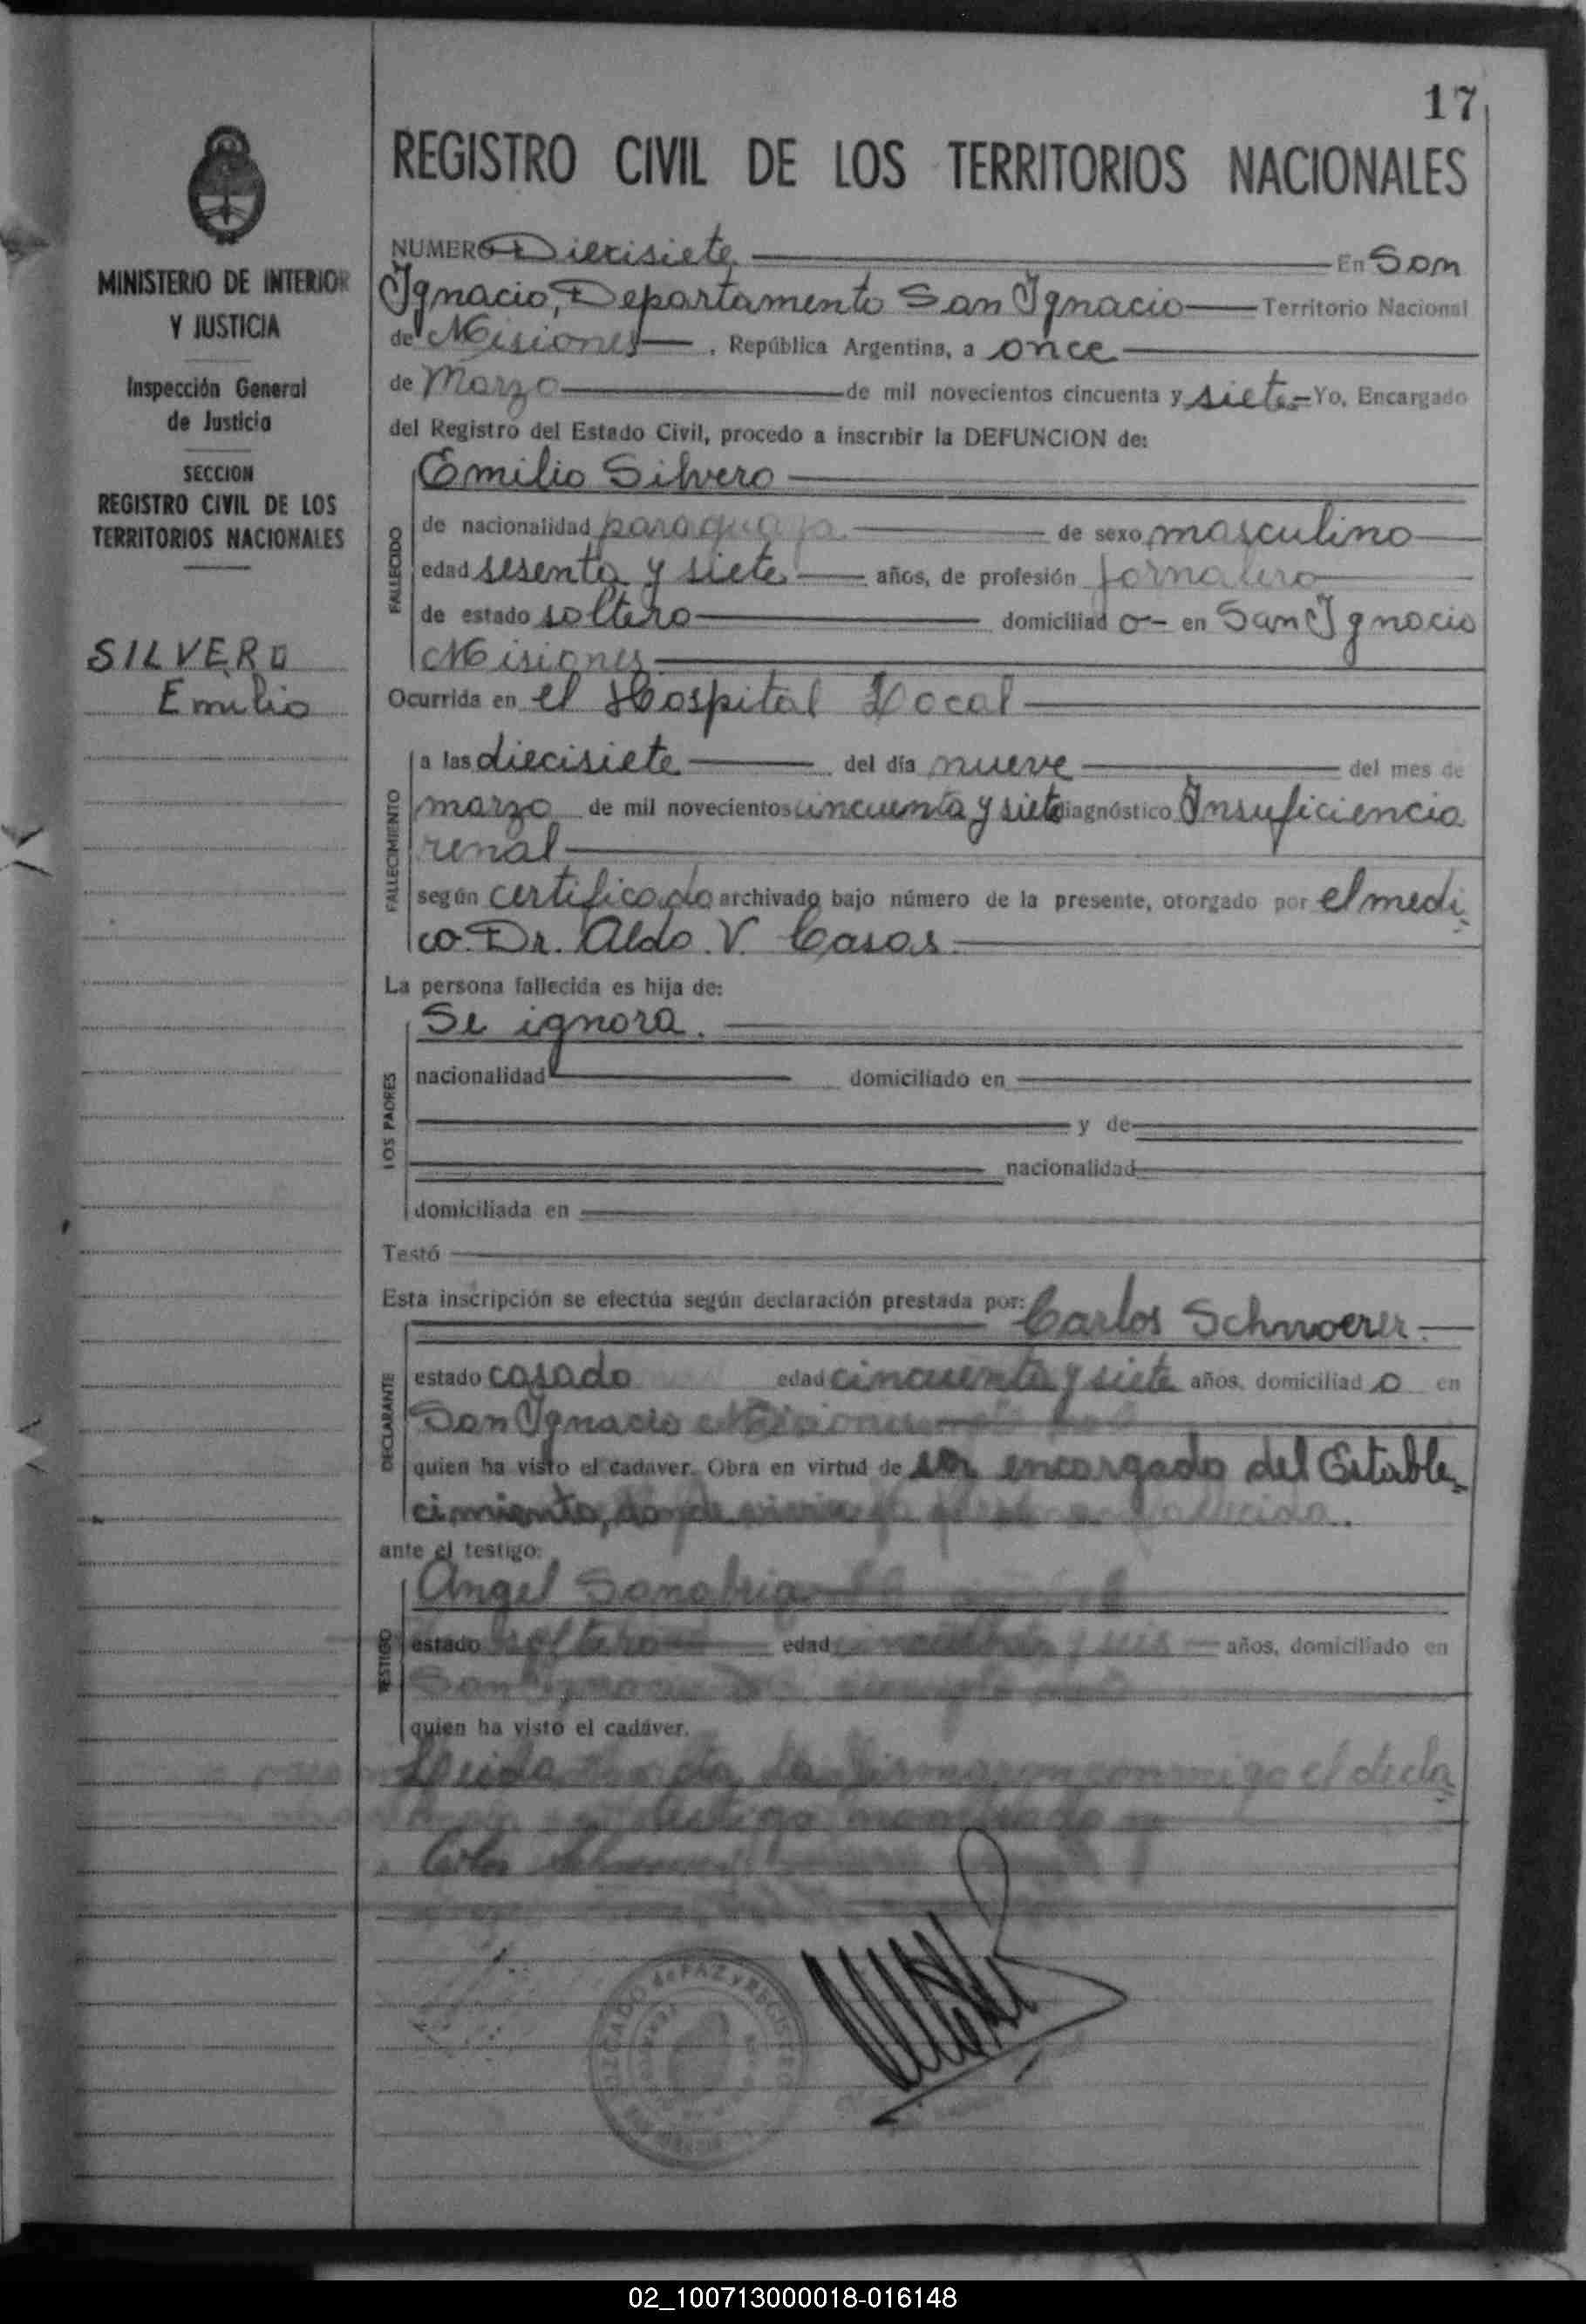 17
REGISTRO CIVIL DE LOS TERRITORIOS NACIONALES
MINISTERIO DE INTERIOR
Y JUSTICIA
Inspección General
de Justicia
SECCION
REGISTRO CIVIL DE LOS
TERRITORIOS NACIONALES
SILVERO
Emilio
NUMERO Diecisiete En San
Ignacio, Departamento San Ignacio Territorio Nacional
de Misiones, República Argentina, a once
de Marzo de mil novecientos cincuenta y siete Yo, Encargado
del Registro del Estado Civil, procedo a inscribir la DEFUNCION de:
Emilio Silvero
FALLECIDO
de nacionalidad paraguaya de sexo masculino
edad sesenta y siete años, de profesión jornalero
de estado soltero domiciliado en San Ignacio
Misiones
Ocurrida en el Hospital Local
FALLECIMIENTO
a las diecisiete del día nueve del mes de
marzo de mil novecientos cincuenta y siete diagnóstico Insuficiencia
renal
según certificado archivado bajo número de la presente, otorgado por el medi
co. Dr. Aldo V. Casas
La persona fallecida es hija de:
LOS PADRES
Se ignora.
nacionalidad domiciliado en
y de
nacionalidad
domiciliada en
Testó
Esta inscripción se efectúa según declaración prestada por: Carlos
DECLARANTE
estado casado edad cincuenta y siete años, domiciliado en
San Ignacio Misiones
quien ha visto el cadáver. Obra en virtud de ser encargado del Estable
cimiento, donde
ante el testigo:
TESTIGO
Angel Sanabria
estado soltero edad y seis años, domiciliado en
San Ignacio
quien ha visto el cadáver.
Leida conmigo el decla
testigo
Carlos
JUZGADO de PAZ y REGISTRO
02_100713000018-016148